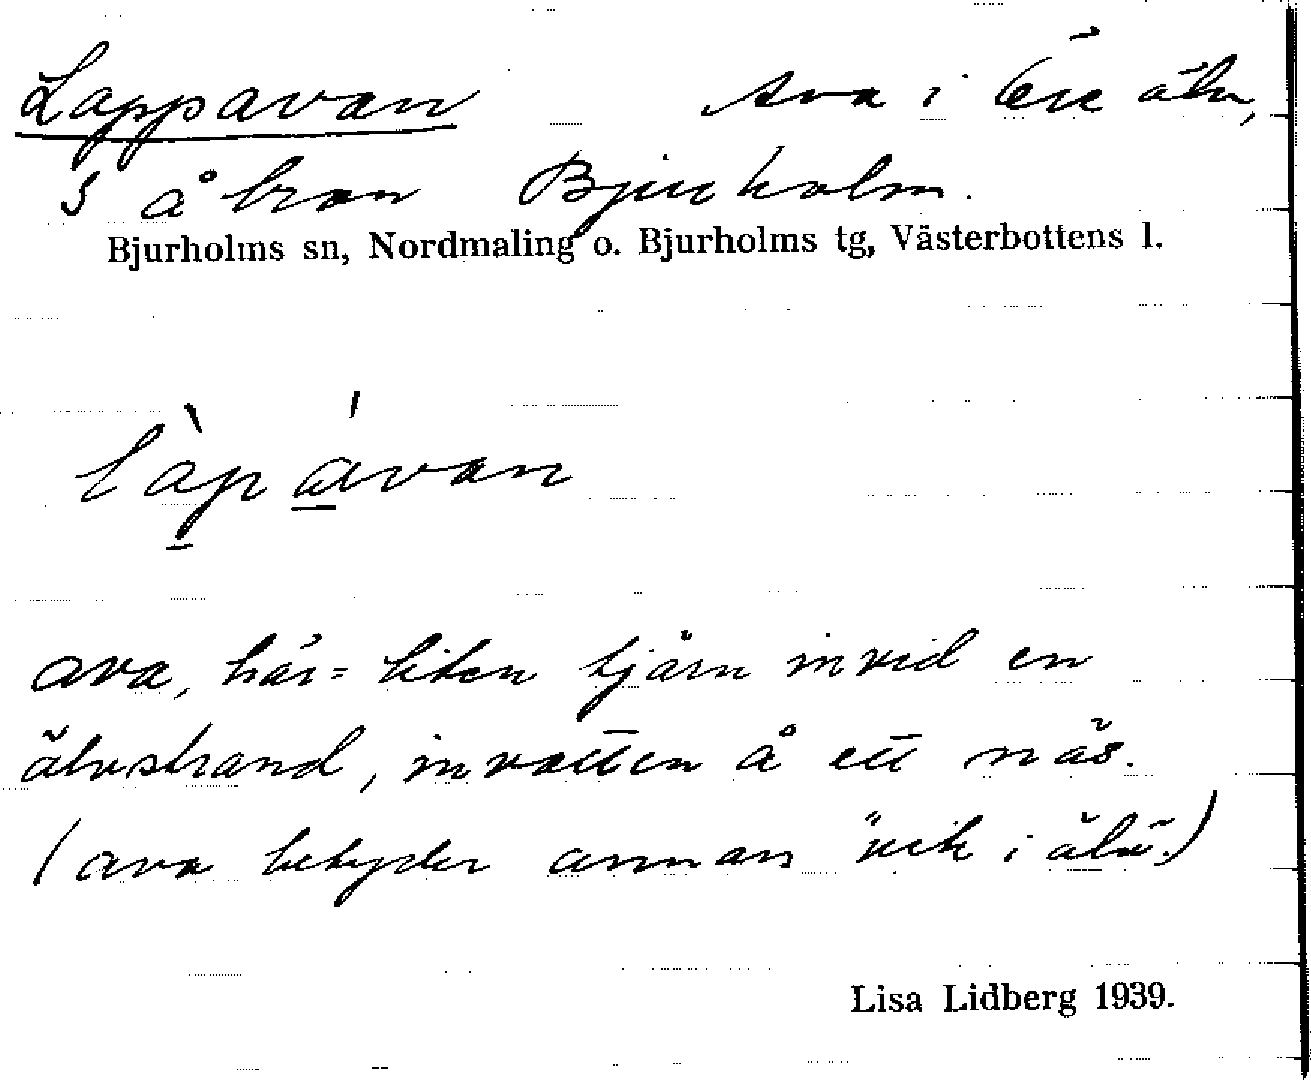 Lappavan Ava i Öre älv,
S å kron Bjurholm.
Bjurholms sn, Nordmaling o. Bjurholms tg, Västerbottens l.
làpávan
ava, här = liten tjärn invid en
älvstrand, invatten å ett näs.
(ava betyder annars "vik i älv".)
Lisa Lidberg 1939.